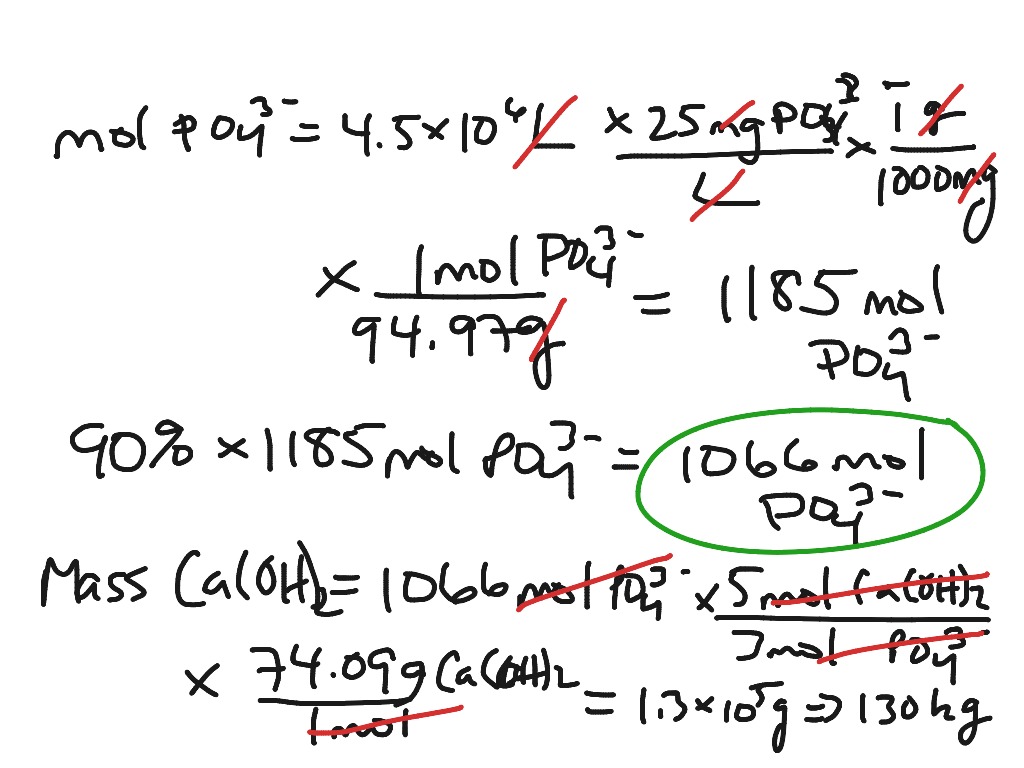 mol PO₄³⁻ = 4.5 × 10⁶ L × 25 mg PO₄³⁻ / L × 1 g / 1000 mg
× 1 mol PO₄³⁻ / 94.97 g = 1185 mol PO₄³⁻
90% × 1185 mol PO₄³⁻ = 1066 mol PO₄³⁻
Mass Ca(OH)₂ = 1066 mol PO₄³⁻ × 5 mol Ca(OH)₂ / 3 mol PO₄³⁻
× 74.09 g Ca(OH)₂ / 1 mol = 1.3 × 10⁵ g ⇒ 130 kg